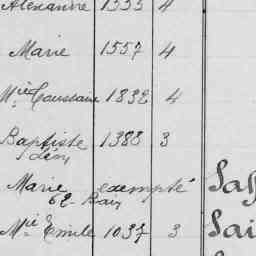 Alexandre 1335 4
Marie 1557 4
Mie Toussaint 1832 4
Baptiste 1388 3
Léon
Marie exempté
62 Bain
Mie Emile 1037 3